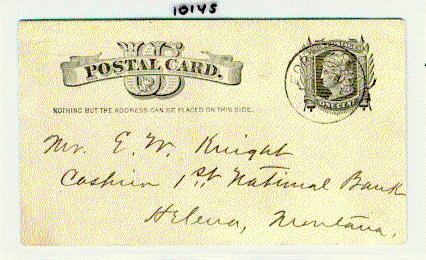 10145
US
POSTAL CARD.
U.S. POSTAGE
ONE CENT
NOTHING BUT THE ADDRESS CAN BE PLACED ON THIS SIDE.
Mr. E. W. Knight
Cashier 1st National Bank
Helena, Montana.